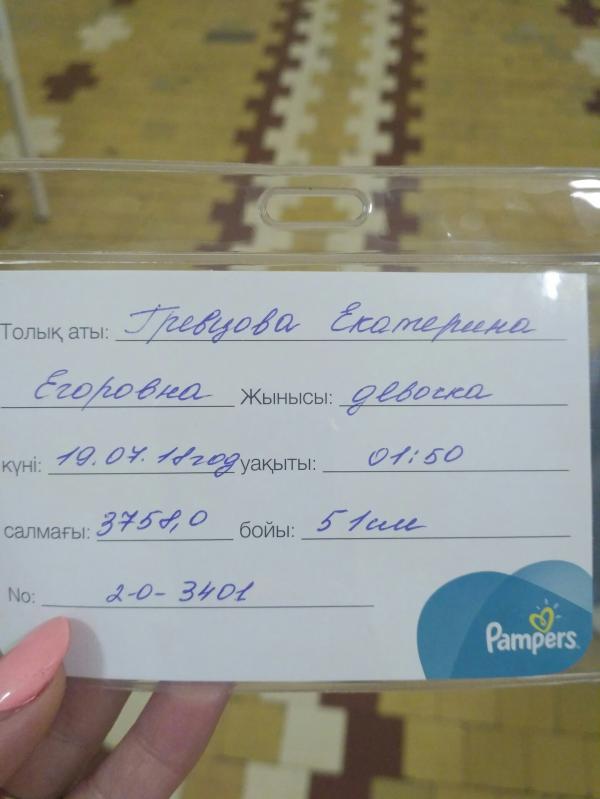 Толық аты: Гревцова Екатерина
Егоровна Жынысы: девочка
күні: 19.07.18год уақыты: 01:50
салмағы: 3758,0 бойы: 51см
No: 2-0-3401
Pampers